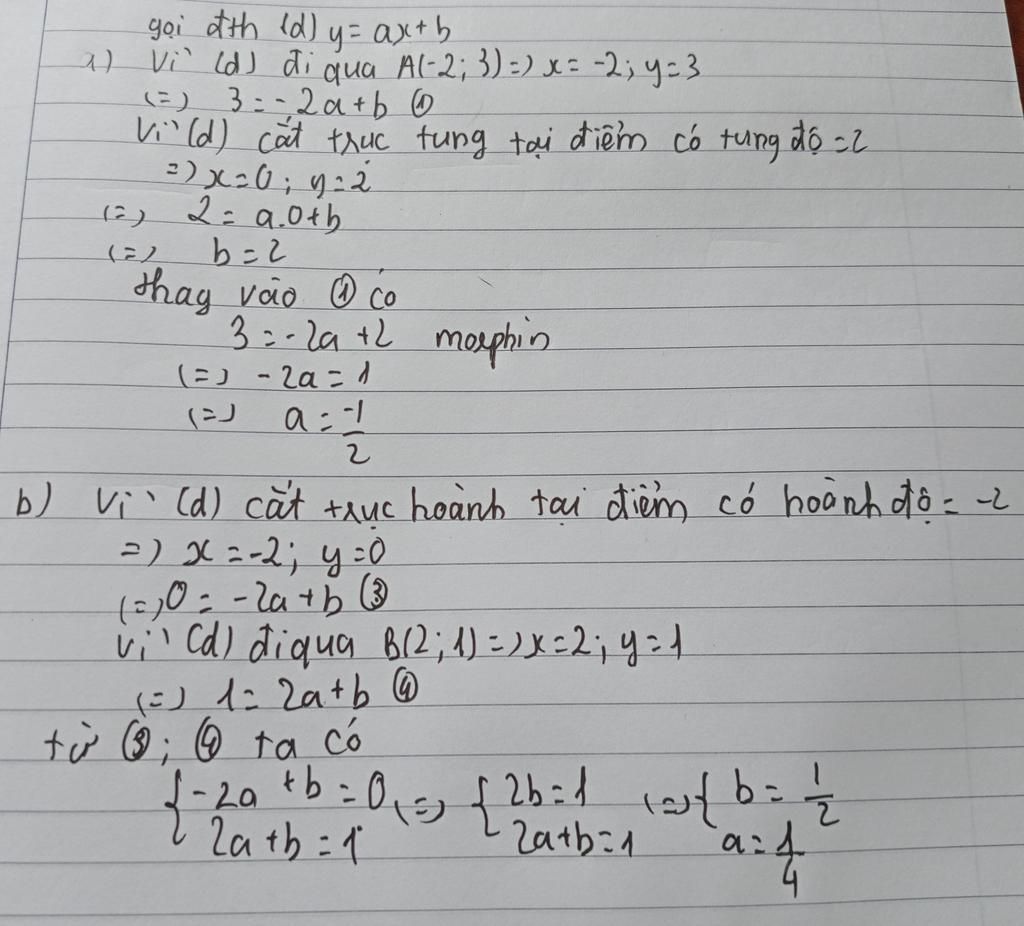 gọi đth (d) y = ax + b
a) Vì (d) đi qua A(-2; 3) => x = -2; y = 3
(=) 3 = -2a + b ①
Vì (d) cắt trục tung tại điểm có tung độ = 2
=> x = 0; y = 2
(=) 2 = a.0 + b
(=) b = 2
thay vào ① có
3 = -2a + 2 morphin
(=) -2a = 1
(=) a = -1/2
b) Vì (d) cắt trục hoành tại điểm có hoành độ = -2
=> x = -2; y = 0
(=) 0 = -2a + b ③
Vì (d) đi qua B(2; 1) => x = 2; y = 1
(=) 1 = 2a + b ④
từ ③; ④ ta có
{ -2a + b = 0 (=) { 2b = 1 (=) { b = 1/2
2a + b = 1 2a + b = 1 a = 1/4